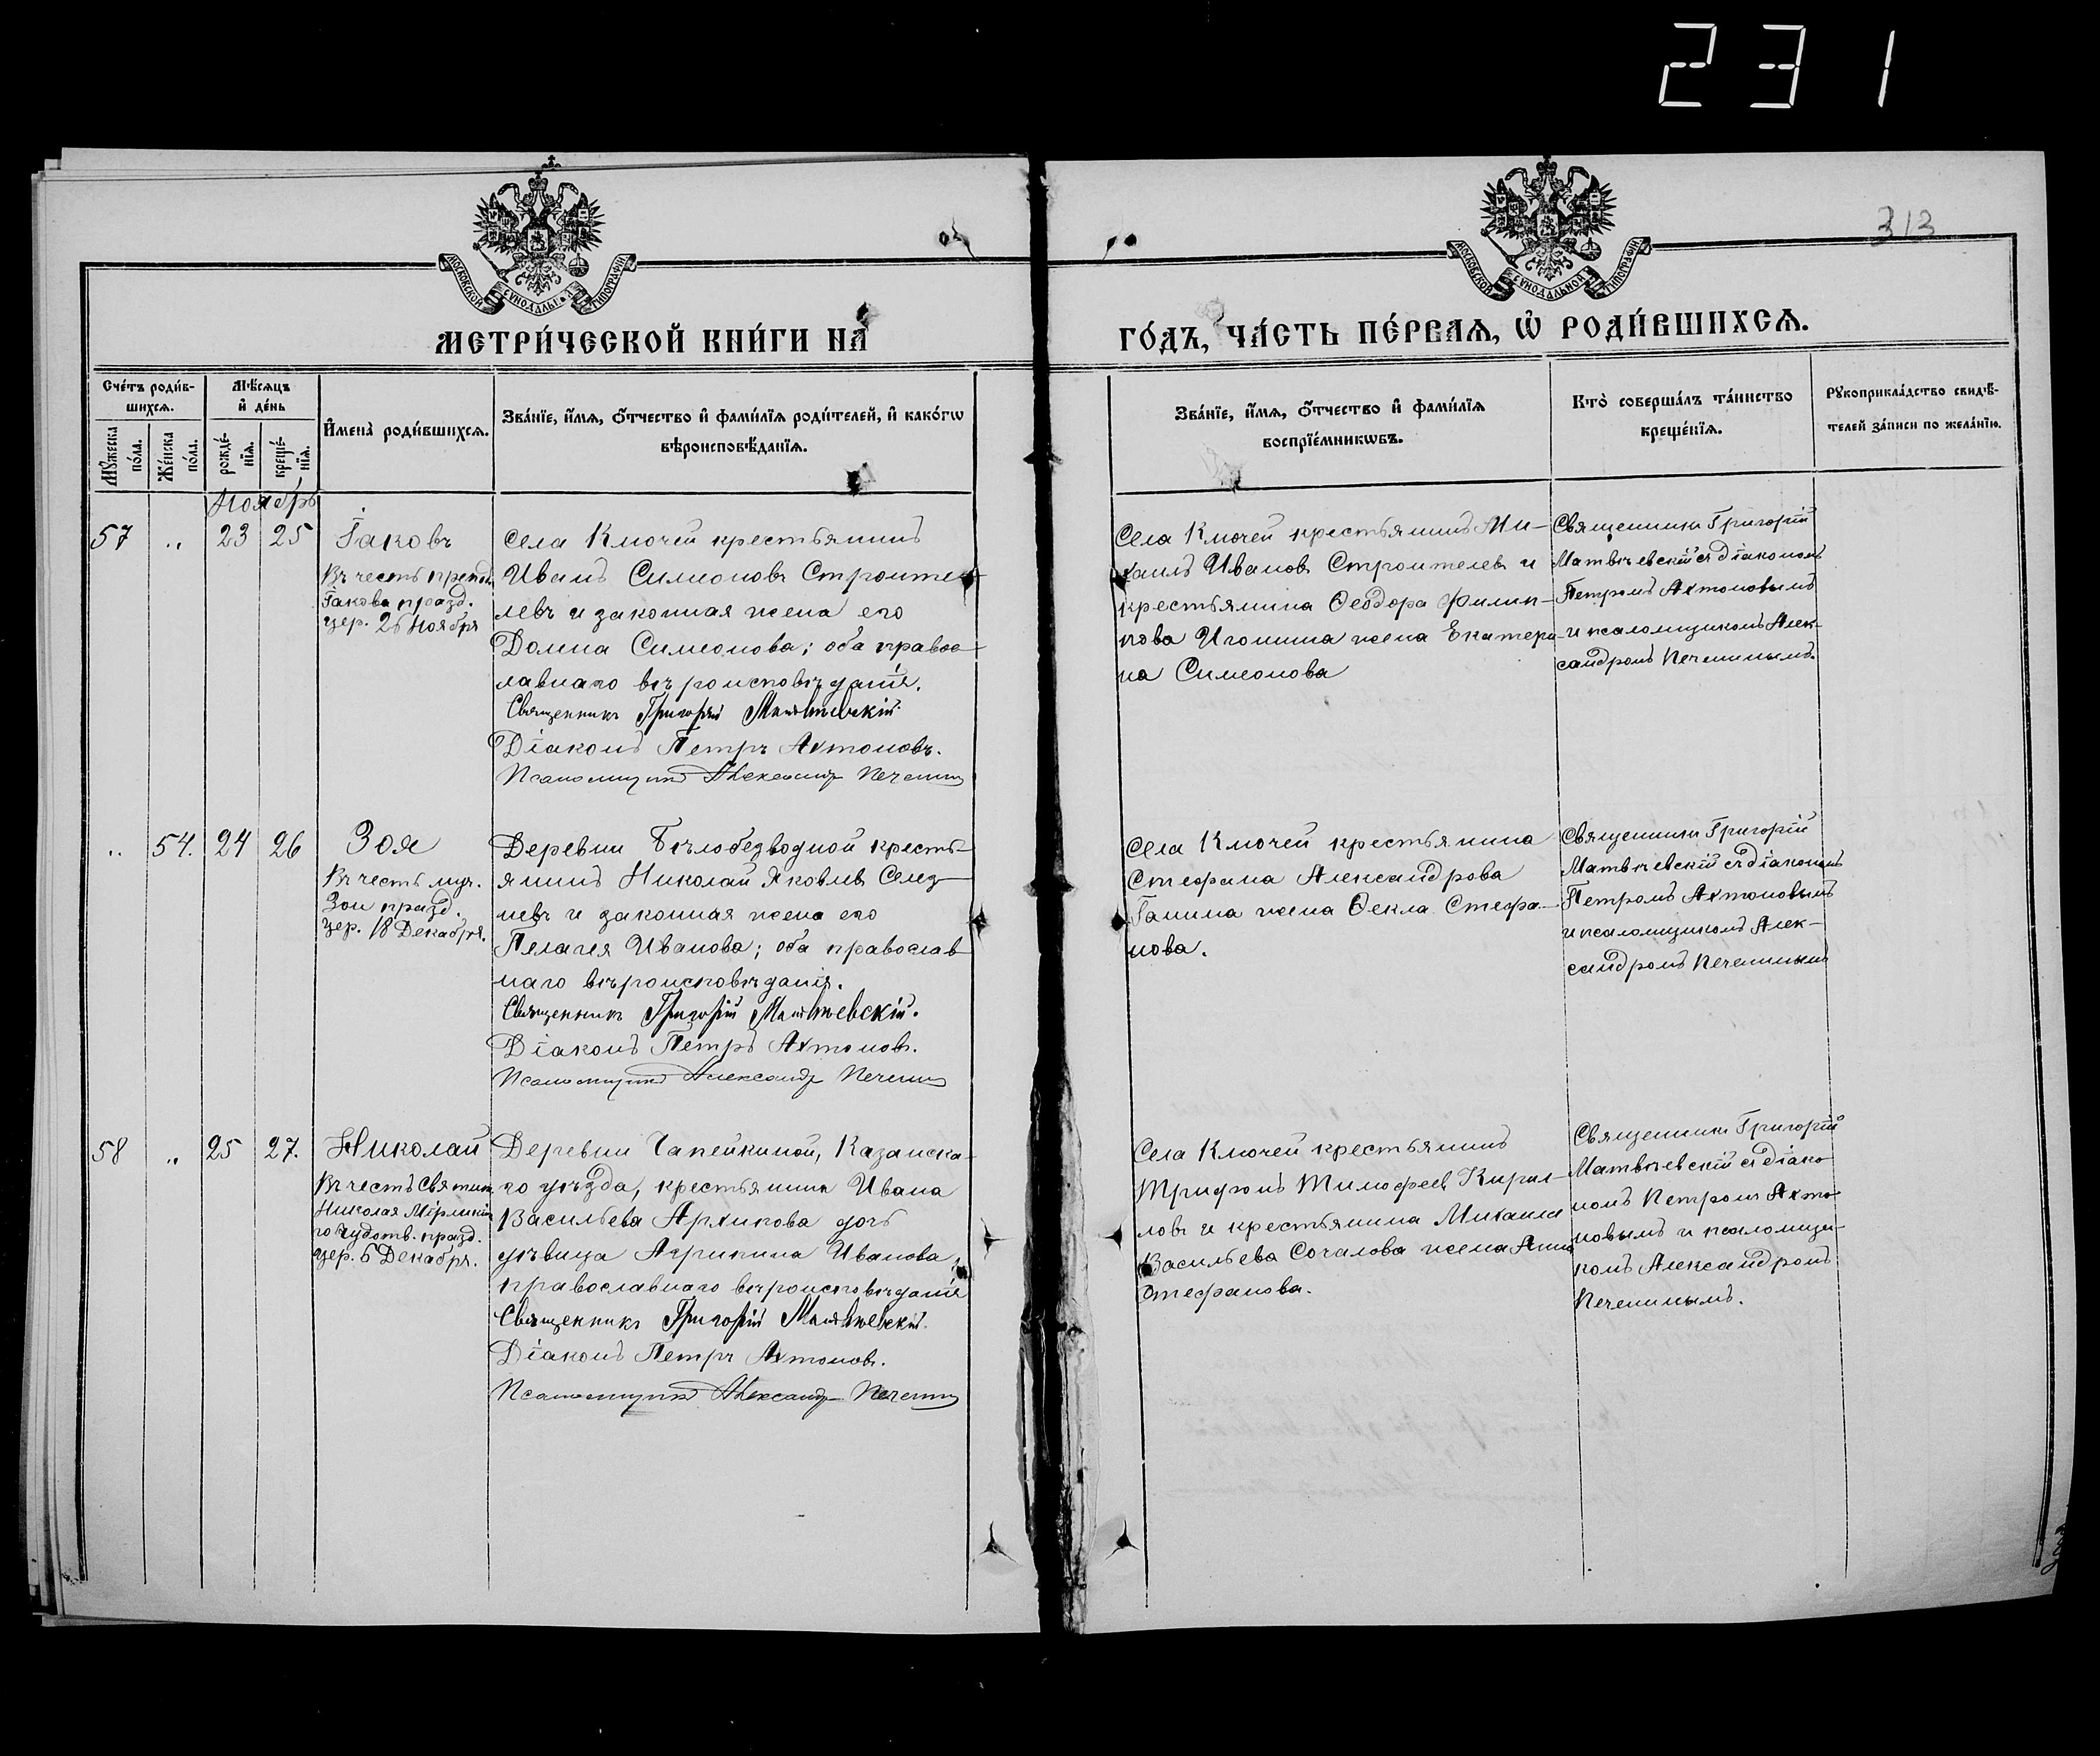 231
313
МОСКОВСКОЙ СУНОДАЛЬНОЙ ТИПОГРАФІИ
МОСКОВСКОЙ СУНОДАЛЬНОЙ ТИПОГРАФІИ
МЕТРИ́ЧЕСКОЙ КНИ́ГИ НА
ГО́ДЪ, ЧА́СТЬ ПЕ́РВАѦ, Ѡ РОДИ́ВШИХСѦ.
Сче́тъ роди́в-
шихсѧ.
Мꙋ́жеска
по́ла.
Же́нска
по́ла.
Мѣ́сѧцъ
и҆ де́нь
рожде́-
нїѧ.
креще́-
нїѧ.
И҆мена̀ роди́вшихсѧ.
Зва́нїе, и҆́мѧ, ѻ҆́тчество и҆ фами́лїѧ роди́телей, и҆ како́гѡ
вѣроисповѣ́данїѧ.
Зва́нїе, и҆́мѧ, ѻ҆́тчество и҆ фами́лїѧ
воспрїе́мникѡвъ.
Кто̀ соверша́лъ та́инство
креще́нїѧ.
Рꙋкоприкла́дство свидѣ́-
телей за́писи по жела́нїю.
Ноябрь
57 „ 23 25 Іаковъ
Въ честь препод.
Іакова празд.
цер. 26 Ноября
Села Ключей крестьянинъ
Иванъ Симеоновъ Строите-
левъ и законная жена его
Домна Симеонова; оба правос-
лавнаго вѣроисповѣданія.
Священникъ Григорій Матвѣевскій
Діаконъ Петръ Ахтоновъ.
Псаломщикъ Александръ Печенинъ
Села Ключей крестьянинъ Ми-
хаилъ Ивановъ Строителевъ и
крестьянина Ѳеодора Филип-
пова Игонина жена Екатери-
на Симеонова
Священникъ Григорій
Матвѣевскій съ діакономъ
Петромъ Ахтоновымъ
и псаломщикомъ Алек-
сандромъ Печенинымъ.
„ 54. 24 26 Зоя
Въ честь муч.
Зои празд.
цер. 18 Декабря.
Деревни Бѣлобезводной кресть-
янинъ Николай Яковлевъ Селез-
невъ и законная жена его
Пелагея Иванова; оба православ-
наго вѣроисповѣданія.
Священникъ Григорій Матвѣевскій.
Діаконъ Петръ Ахтоновъ.
Псаломщикъ Александръ Печенинъ
Села Ключей крестьянина
Стефана Александрова
Ганина жена Ѳекла Стефа-
нова.
Священникъ Григорій
Матвѣевскій съ діакономъ
Петромъ Ахтоновымъ
и псаломщикомъ Алек-
сандромъ Печенинымъ
58 „ 25 27. Николай
Въ честь Святит.
Николая Мірликій
го Чудотв. празд.
цер. 6 Декабря.
Деревни Чапейкиной, Казанска-
го уѣзда, крестьянина Ивана
Васильева Архипова дочь
дѣвица Агрипина Иванова,
православнаго вѣроисповѣданія
Священникъ Григорій Матвѣевскій.
Діаконъ Петръ Ахтоновъ.
Псаломщикъ Александръ Печенинъ
Села Ключей крестьянинъ
Трифонъ Тимофеевъ Кирил-
ловъ и крестьянина Михаила
Васильева Сочалова жена Анна
Стефанова.
Священникъ Григорій
Матвѣевскій съ діако-
номъ Петромъ Ахто-
новымъ и псаломщи-
комъ Александромъ
Печенинымъ.